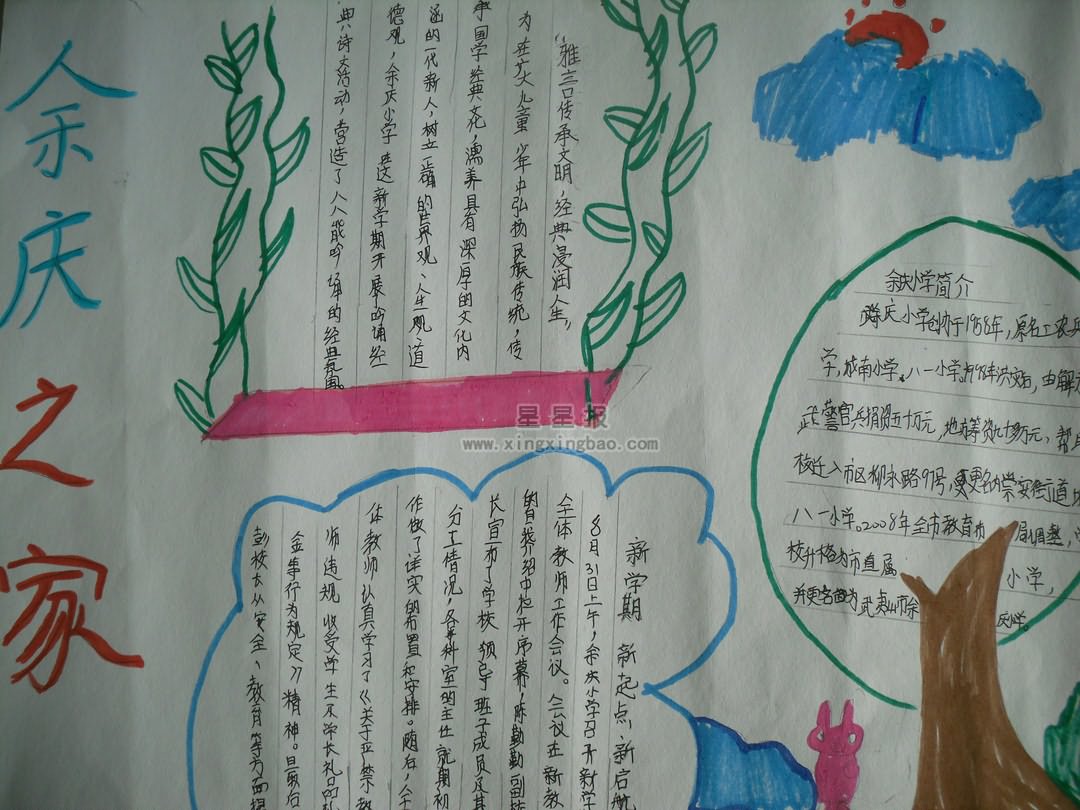 余庆之家
“雅言传承文明，经典浸润人生”
为在广大儿童少年中弘扬民族传统，传
承国学经典文化，濡养具有深厚的文化内
涵的一代新人，树立正确的世界观、人生观、道
德观，余庆小学在这新学期开展了吟诵经
典诗文活动，营造了人人能吟诵的经典氛围。
余庆小学简介
余庆小学创办于1958年，原名工农兵
学，城南小学，八一小学，98年洪灾后，由解
武警官兵捐资五十万元，地方筹资
校迁入市区柳永路97号，更名为崇安街道
八一小学。2008年全市教育布局调整，
校升格为市直属小学，
并更名为武夷山市余庆小学。
新学期 新起点、新启航
8月31日上午，余庆小学召开新学
全体教师工作会议。会议在新教
的自我介绍中拉开序幕，陈勤勤副
长宣布了学校领导班子成员及其
分工情况，各科室的主任就期初
作做了详实的布置和安排。随后，全
体教师认真学习了《关于严禁教
师违规收受学生及学长礼品礼
金等行为规定》精神。最后
彭校长从安全、教育等方面
星星报
www.xingxingbao.com